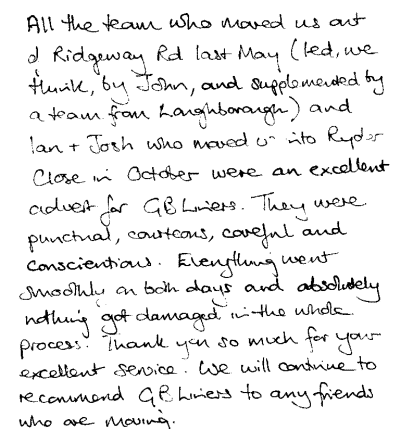 All the team who moved us out
of Ridgeway Rd last May (led, we
think, by John, and supplemented by
a team from Loughborough) and
Ian + Josh who moved us into Ryder
Close in October were an excellent
advert for GB Liners. They were
punctual, courteous, careful and
conscientious. Everything went
smoothly on both days and absolutely
nothing got damaged in the whole
process. Thank you so much for your
excellent service. We will continue to
recommend GB Liners to any friends
who are moving.